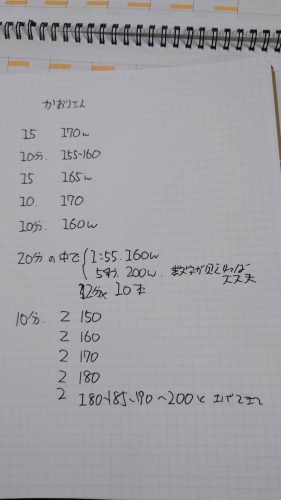 かおりさん
15 170w
10分. 155~160
15 165w
10. 170
10分. 160w
20分の中で 1:55. 160w
5秒. 200w. 数字が見えれば
大丈夫
2分× 10本
10分. 2 150
2 160
2 170
2 180
2 180、185、190~200と上げてく